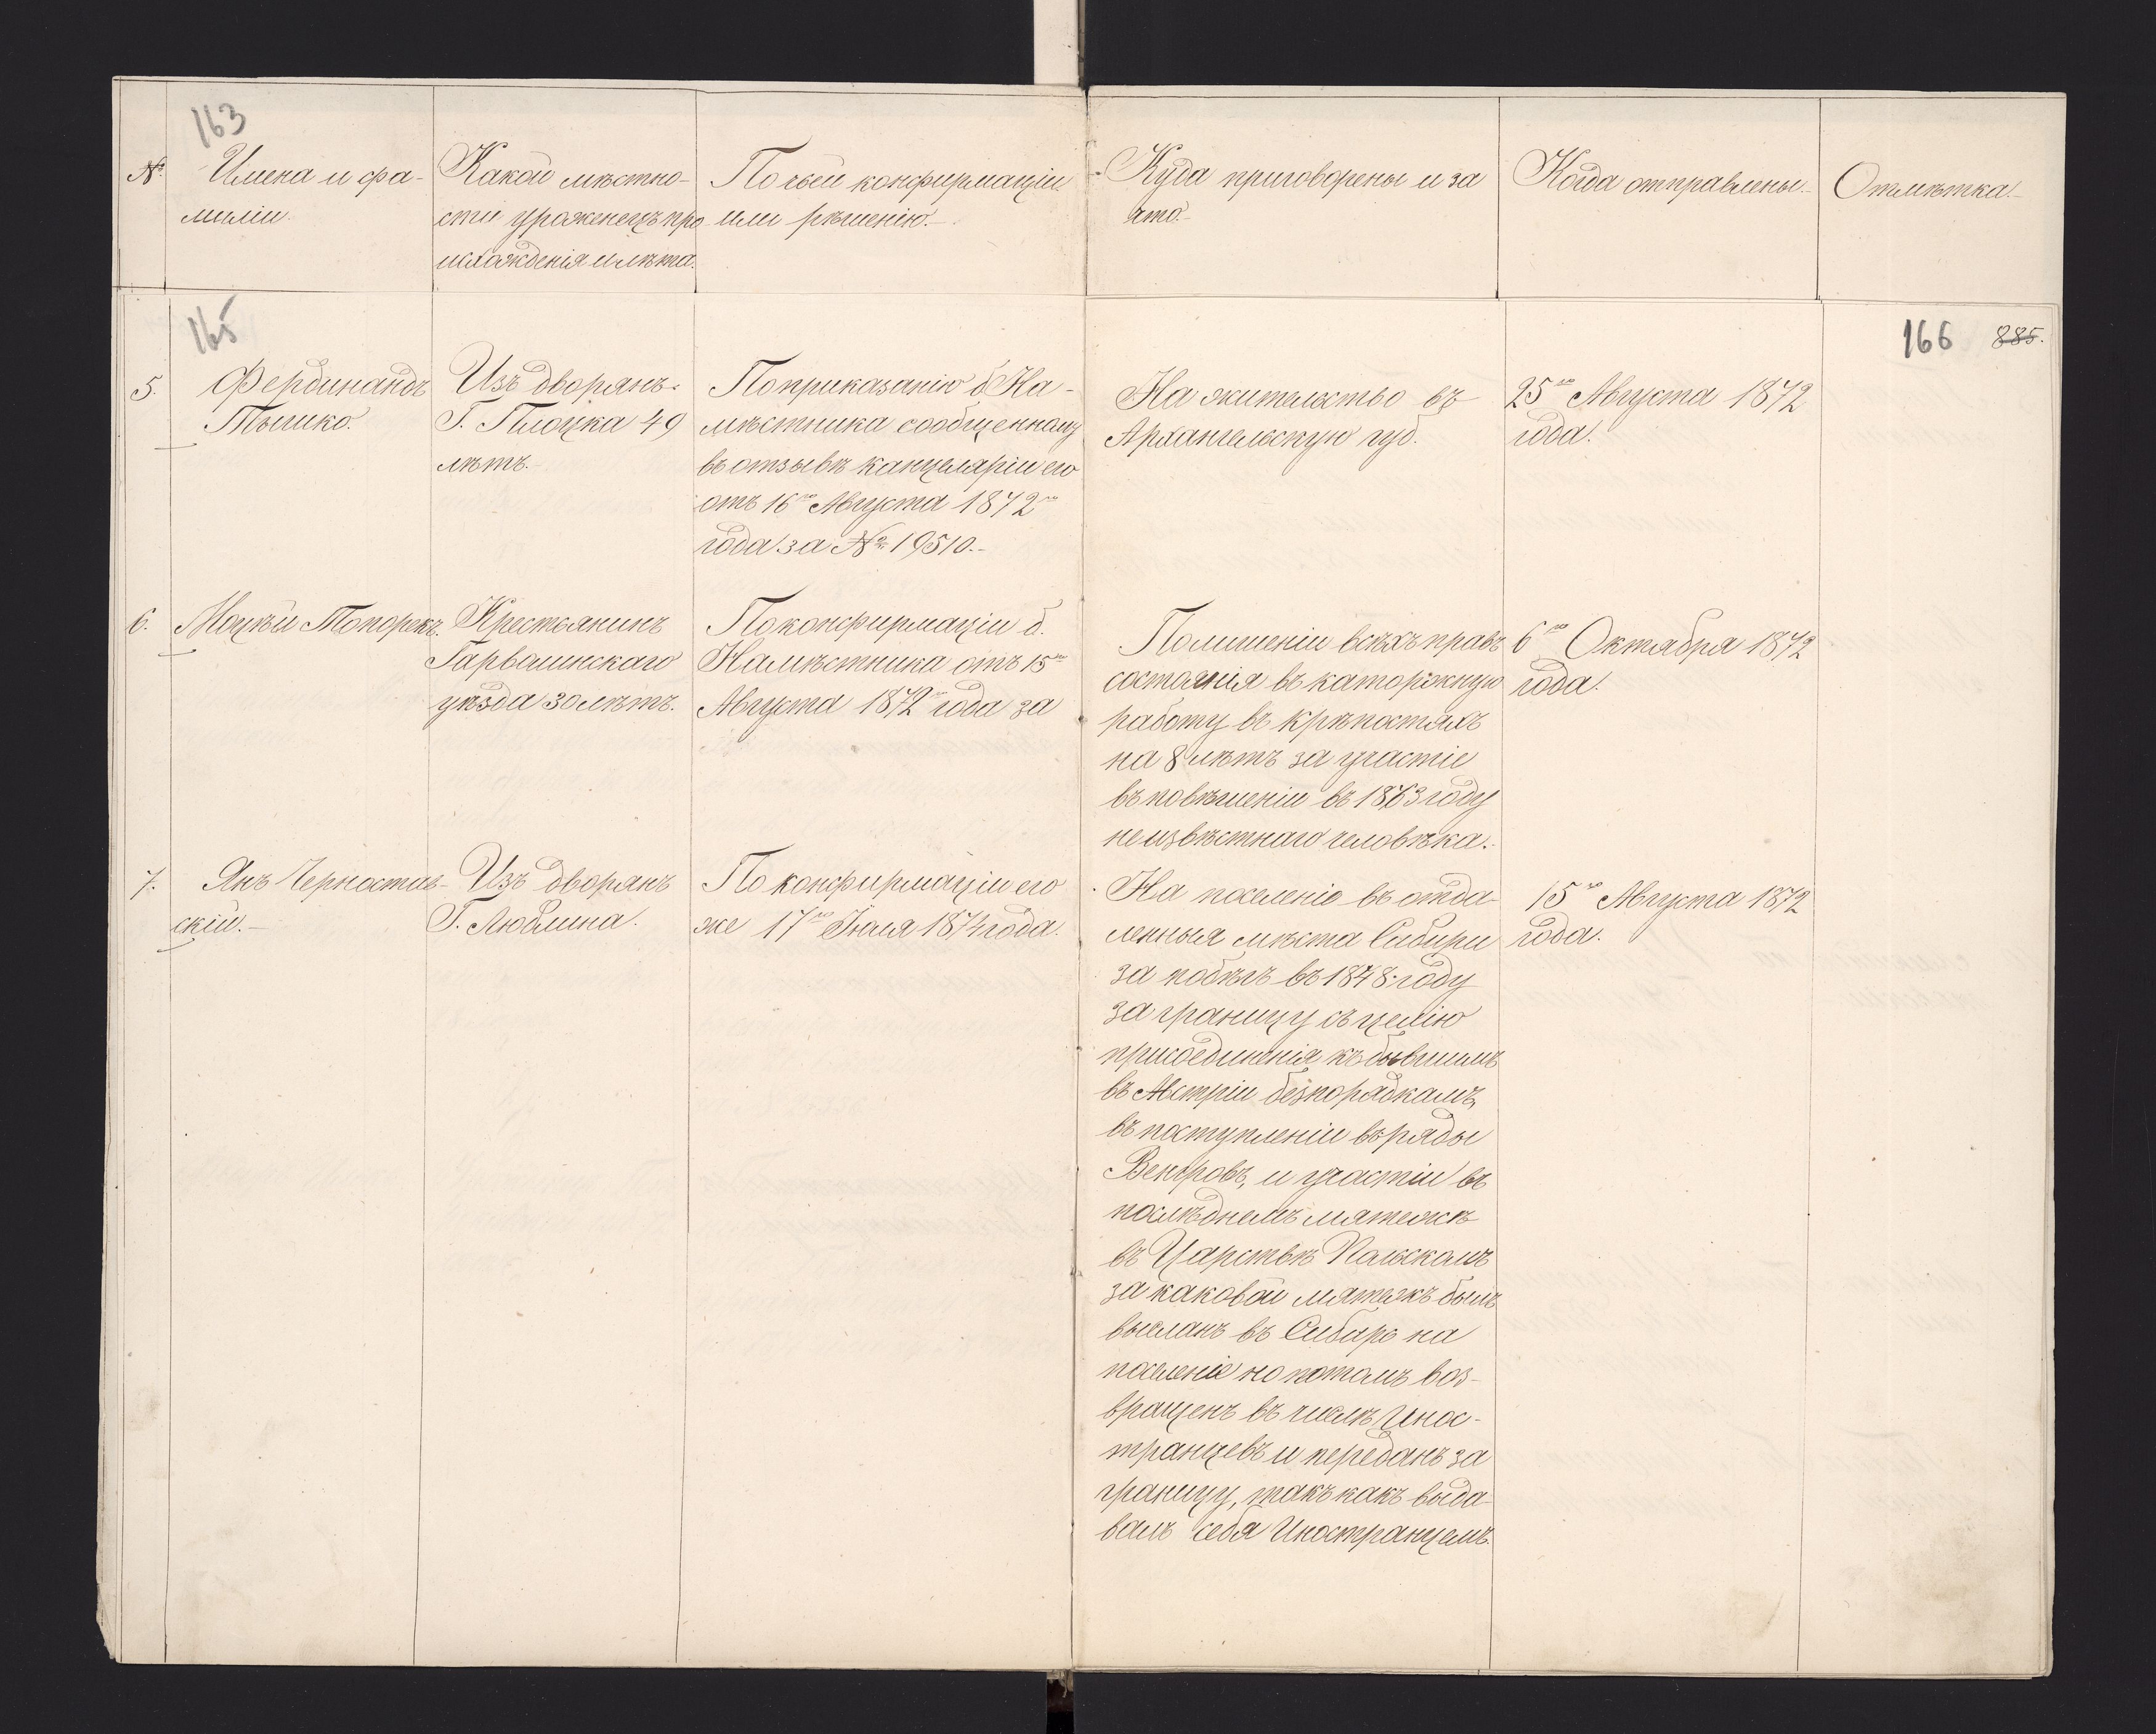 163
№
Имена и фа-
миліи.
Какой мѣстно-
сти уроженецъ про
исхожденія и лѣта.
По чьей конфирмаціи
или рѣшенію.-
Куда приговорены и за
что.-
Когда отправлены.-
Отмѣтка.-
165
166 885.
5.
Фердинандъ
Тышко.
Изъ дворянъ.
Г. Плоцка 49
лѣтъ.-
По приказанію б. На-
мѣстника сообщенному
въ отзывѣ канцеляріи его
отъ 16го Августа 1872го
года за № 19510.-
На жительство въ
Архангельскую губ.
25го Августа 1872
года.
6.
Мацѣй Топорекъ.
Крестьянинъ
Гарволинскаго
уѣзда 30 лѣтъ.
По конфирмаціи б.
Намѣстника отъ 15го
Августа 1872го года за
По лишеніи всѣхъ правъ
состоянія въ каторжную
работу въ крѣпостяхъ
на 8 лѣтъ за участіе
въ повѣшеніи въ 1863 году
неизвѣстнаго человѣка.
6го Октября 1872
года.
7.
Янъ Черностав-
скій.-
Изъ дворянъ
Г. Люблина.
По конфирмаціи его
же 17го Іюля 1874 года.
На поселеніе въ отда-
ленныя мѣста Сибири
за побѣгъ въ 1848 году
за границу съ целію
присоединенія къ бывшимъ
въ Австріи безпорядкамъ,
въ поступленіи въ ряды
Венгровъ, и участіи въ
послѣднемъ мятежѣ
въ Царствѣ Польскомъ
за каковой мятежъ былъ
высланъ въ Сибирь на
поселеніе но потомъ воз-
вращенъ въ числѣ Инос-
транцевъ и переданъ за
границу, такъ какъ выда-
валъ себя Иностранцемъ.
15го Августа 1872
года.